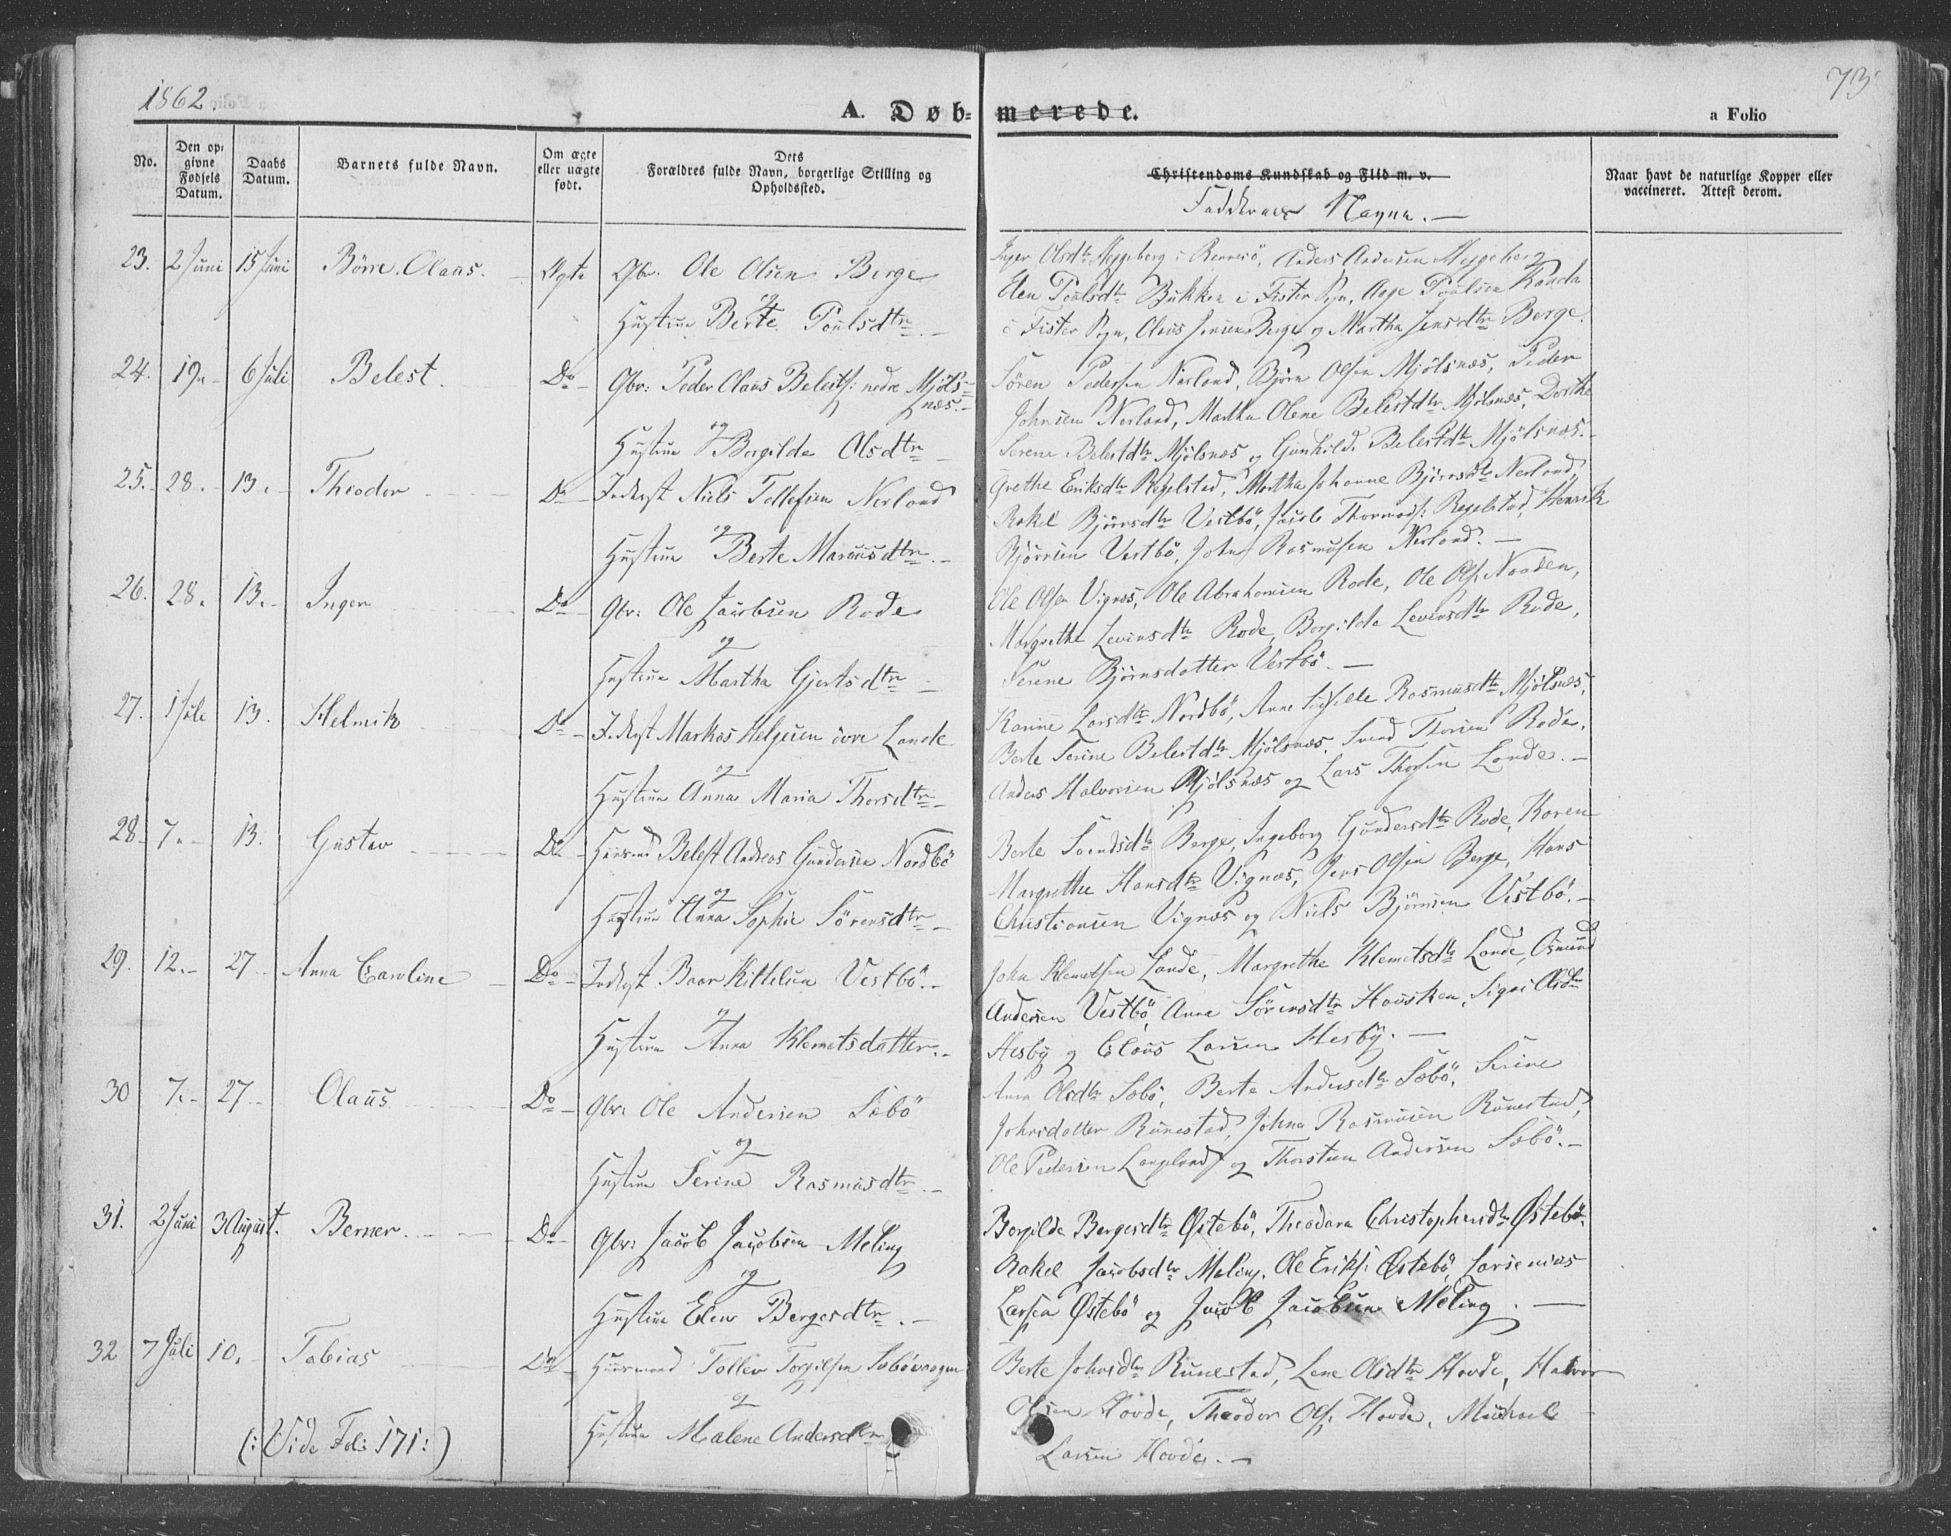 1862.
73
A. Døb=merede.
a Folio
No.
Den op-
givne
Fødsels
Datum.
Daabs
Datum.
Barnets fulde Navn.
Om ægte
eller uægte
født.
Dets
Forældres fulde Navn, borgerlige Stilling og
Opholdssted.
Christendoms Kundskab og Flid m. v.
Faddernes Navne. —
Naar havt de naturlige Kopper eller
vaccineret. Attest derom.
23. 2 Juni 15 Juni Börre Olaus. Ægte Gbr. Ole Olsen Berge
og
Hustrue Berte Poulsdtr. —
Inger Olsdtr Meggeberg i Rennesö, Anders Andersen Meggeberg
Elen Poulsdtr Bukken i Fister Sgn, Aage Poulsen Raada
i Fister Sgn, Olaus Jensen Berge og Martha Jensdtr Berge.
24. 19 – 6 Juli Belest. Do – Gbr: Peder Olaus Belests: nedre Mjöls-
næs. –
og
Hustrue Borgilde Olsdtr –
Sören Pedersen Nerland, Björn Olsen Mjölsnæs, Peder
Johnsen Nerland, Martha Olene Belestdtr Mjölsnæs, Dorthe
Serene Belestdtr Mjölsnæs og Gunhild Belestdtr Mjölsnæs. –
25. 28. – 13. – Theodor Do – Inderst Niels Tollefsen Nerland
og
Hustrue Berte Mariusdtr. –
Grethe Eriksdtr Regelstad, Martha Johanne Björnsdtr Nerland,
Rakel Björnsdtr Vestbö, Jacob Thormods: Regelstad, Henrik
Björnsen Vestbö, John Rasmusen Nerland. —
26. 28. 13. – Inger Do – Gbr: Ole Jacobsen Rode
og
Hustrue Martha Gjertsdtr –
Ole Olsen Vignæs, Ole Abrahamsen Rode, Ole Ols: Naaden,
Margrethe Levinsdtr Rode, Borgilda Levinsdtr Rode,
Serene Björnsdatter Vestbö. —
27. 1 Juli 13. Helmik Do – Inderst Markus Helgesen övre Lande
og
Hustrue Anna Maria Thorsdtr –
Karine Larsdtr Nordbö, Anne Rasmusdtr Mjölsnæs,
Berte Serine Belestdtr Mjölsnæs, Svend Thorsen Rode,
Anders Halvorsen Mjölsnæs og Lars Thorsen Lande. –
28. 7. – 13. Gustav Do – Huusmd Belest Andreas Gundersen Nordbö
og
Hustrue Anna Sophie Sörensdtr –
Berte Svendsdtr Berge, Ingeborg Gundersdtr Rode, Karen
Margrethe Hansdtr Vignæs, Jens Olsen Berge, Hans
Christiansen Vignæs og Niels Björnsen Vestbö. –
29. 12. – 27 – Anna Caroline – Do – Inderst Baar Kittelsen Vestbö. –
og
Hustrue Anna Klemetsdatter. –
John Klemetsen Lande, Margrethe Klemetsdtr Lande, Osmund
Andersen Vestbö, Anna Sörensdtr Housken, Signi Olsdtr
Hesby og Claus Larsen Hesby. —
30 7. – 27. – Olaus Do – Gbr: Ole Andersen Sæbö
og
Hustrue Serine Rasmusdtr. –
Anna Olsdtr Sæbö, Berte Andersdtr Sæbö, Serine
Johnsdatter Runestad, Johne Rasmusen Runestad,
Ole Pedersen Langeland og Thorsteen Andersen Sæbö. –
31. 2 Juni 3 August. Berner. Do – Gbr: Jacob Jacobsen Meling
og
Hustrue Elen Bergersdtr. –
Borgilde Bergersdtr Østebö, Theodora Christophersdtr Østebö
Rakel Jacobsdtr Meling, Ole Eriks: Østebö, Larsenius
Larsen Østebö og Jacob Jacobsen Meling. —
32 7 Juli 10. – Tobias Do – Huusmand Tollev Torgilsen Sæbövaagen
og
Hustrue Malene Andersdtr
(: Vide Fol: 171 :)
Berte Johnsdtr Runestad, Lene Olsdtr Hovde, Halvor
Olsen Hovde, Theodor Ols: Hovde, Michael
Larsen Hovde. –